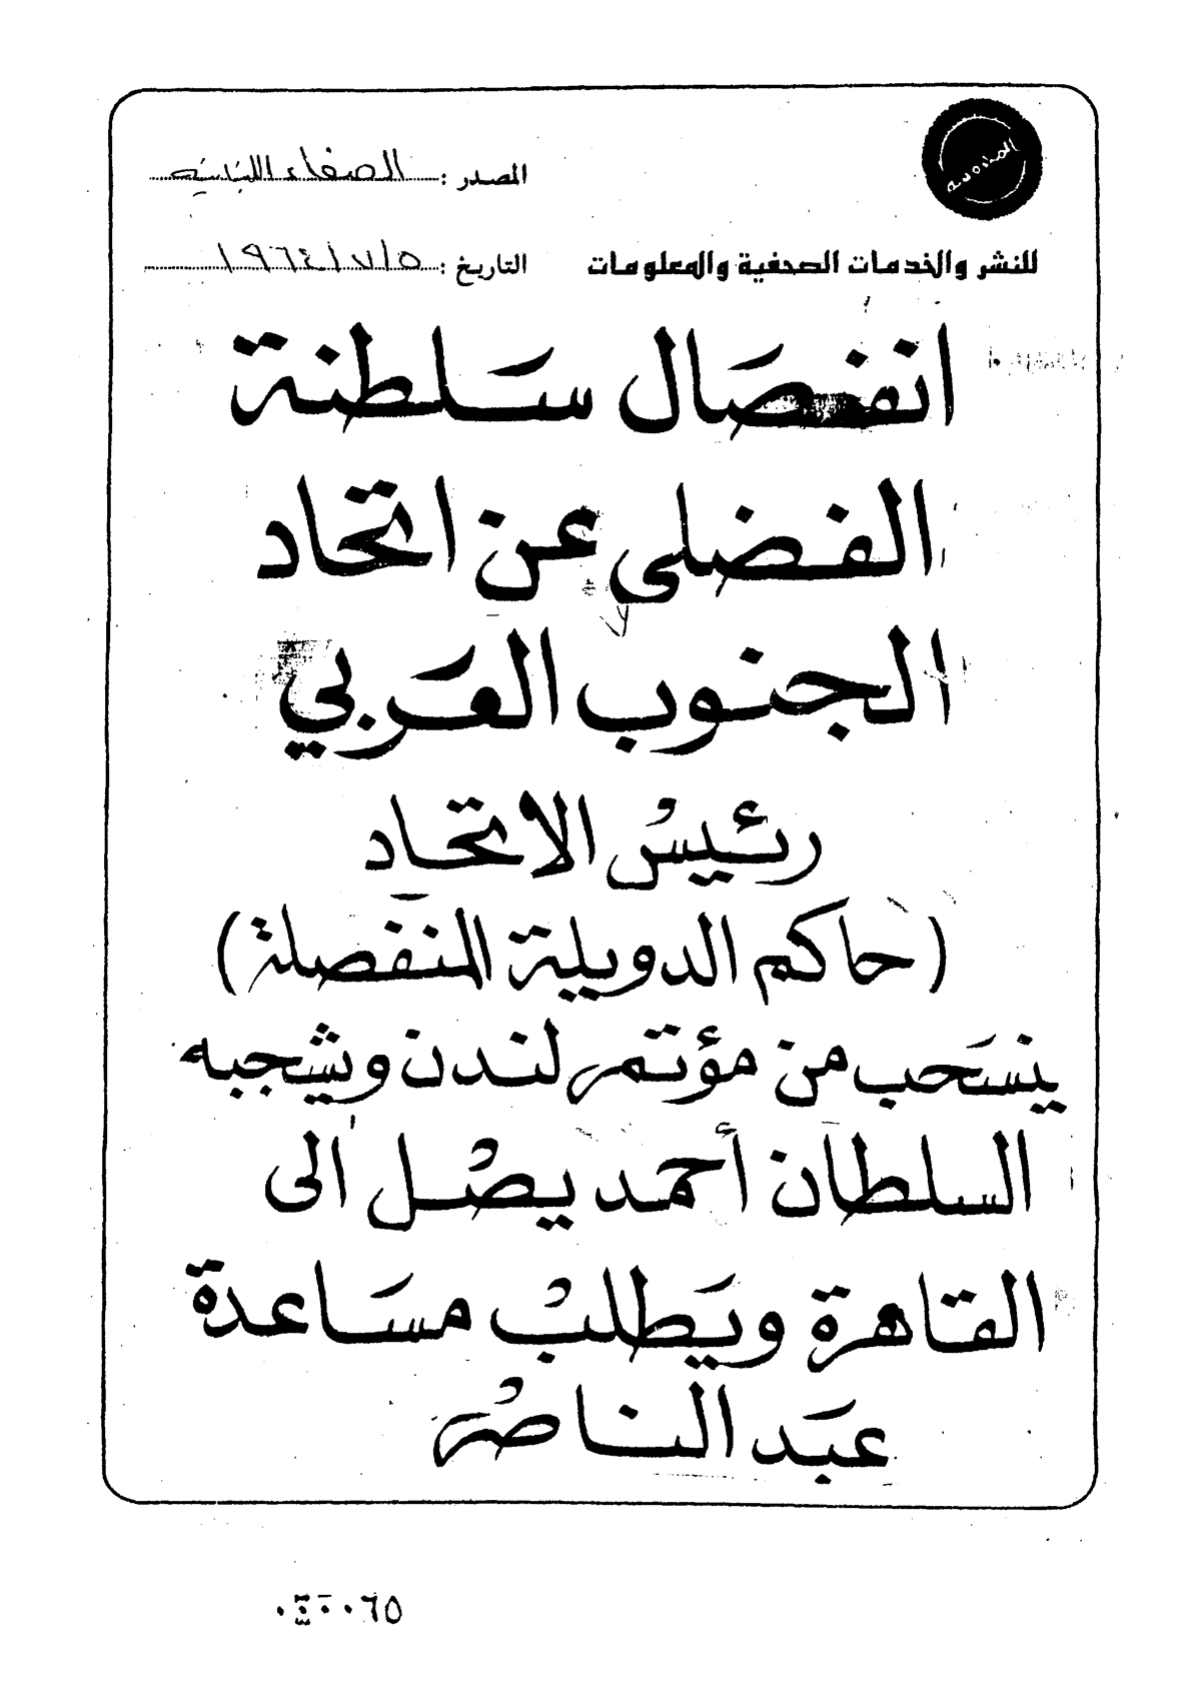 المصدر : الصفاء اللبنانية
للنشر والخدمات الصحفية والمعلومات
التاريخ : ١٩٦٤/٧/٥
انفصال سلطنة
الفضلى عن اتحاد
الجنوب العربي
رئيس الاتحاد
(حاكم الدويلة المنفصلة)
ينسحب من مؤتمر لندن ويشجبه
السلطان أحمد يصل الى
القاهرة ويطلب مساعدة
عبد الناصر